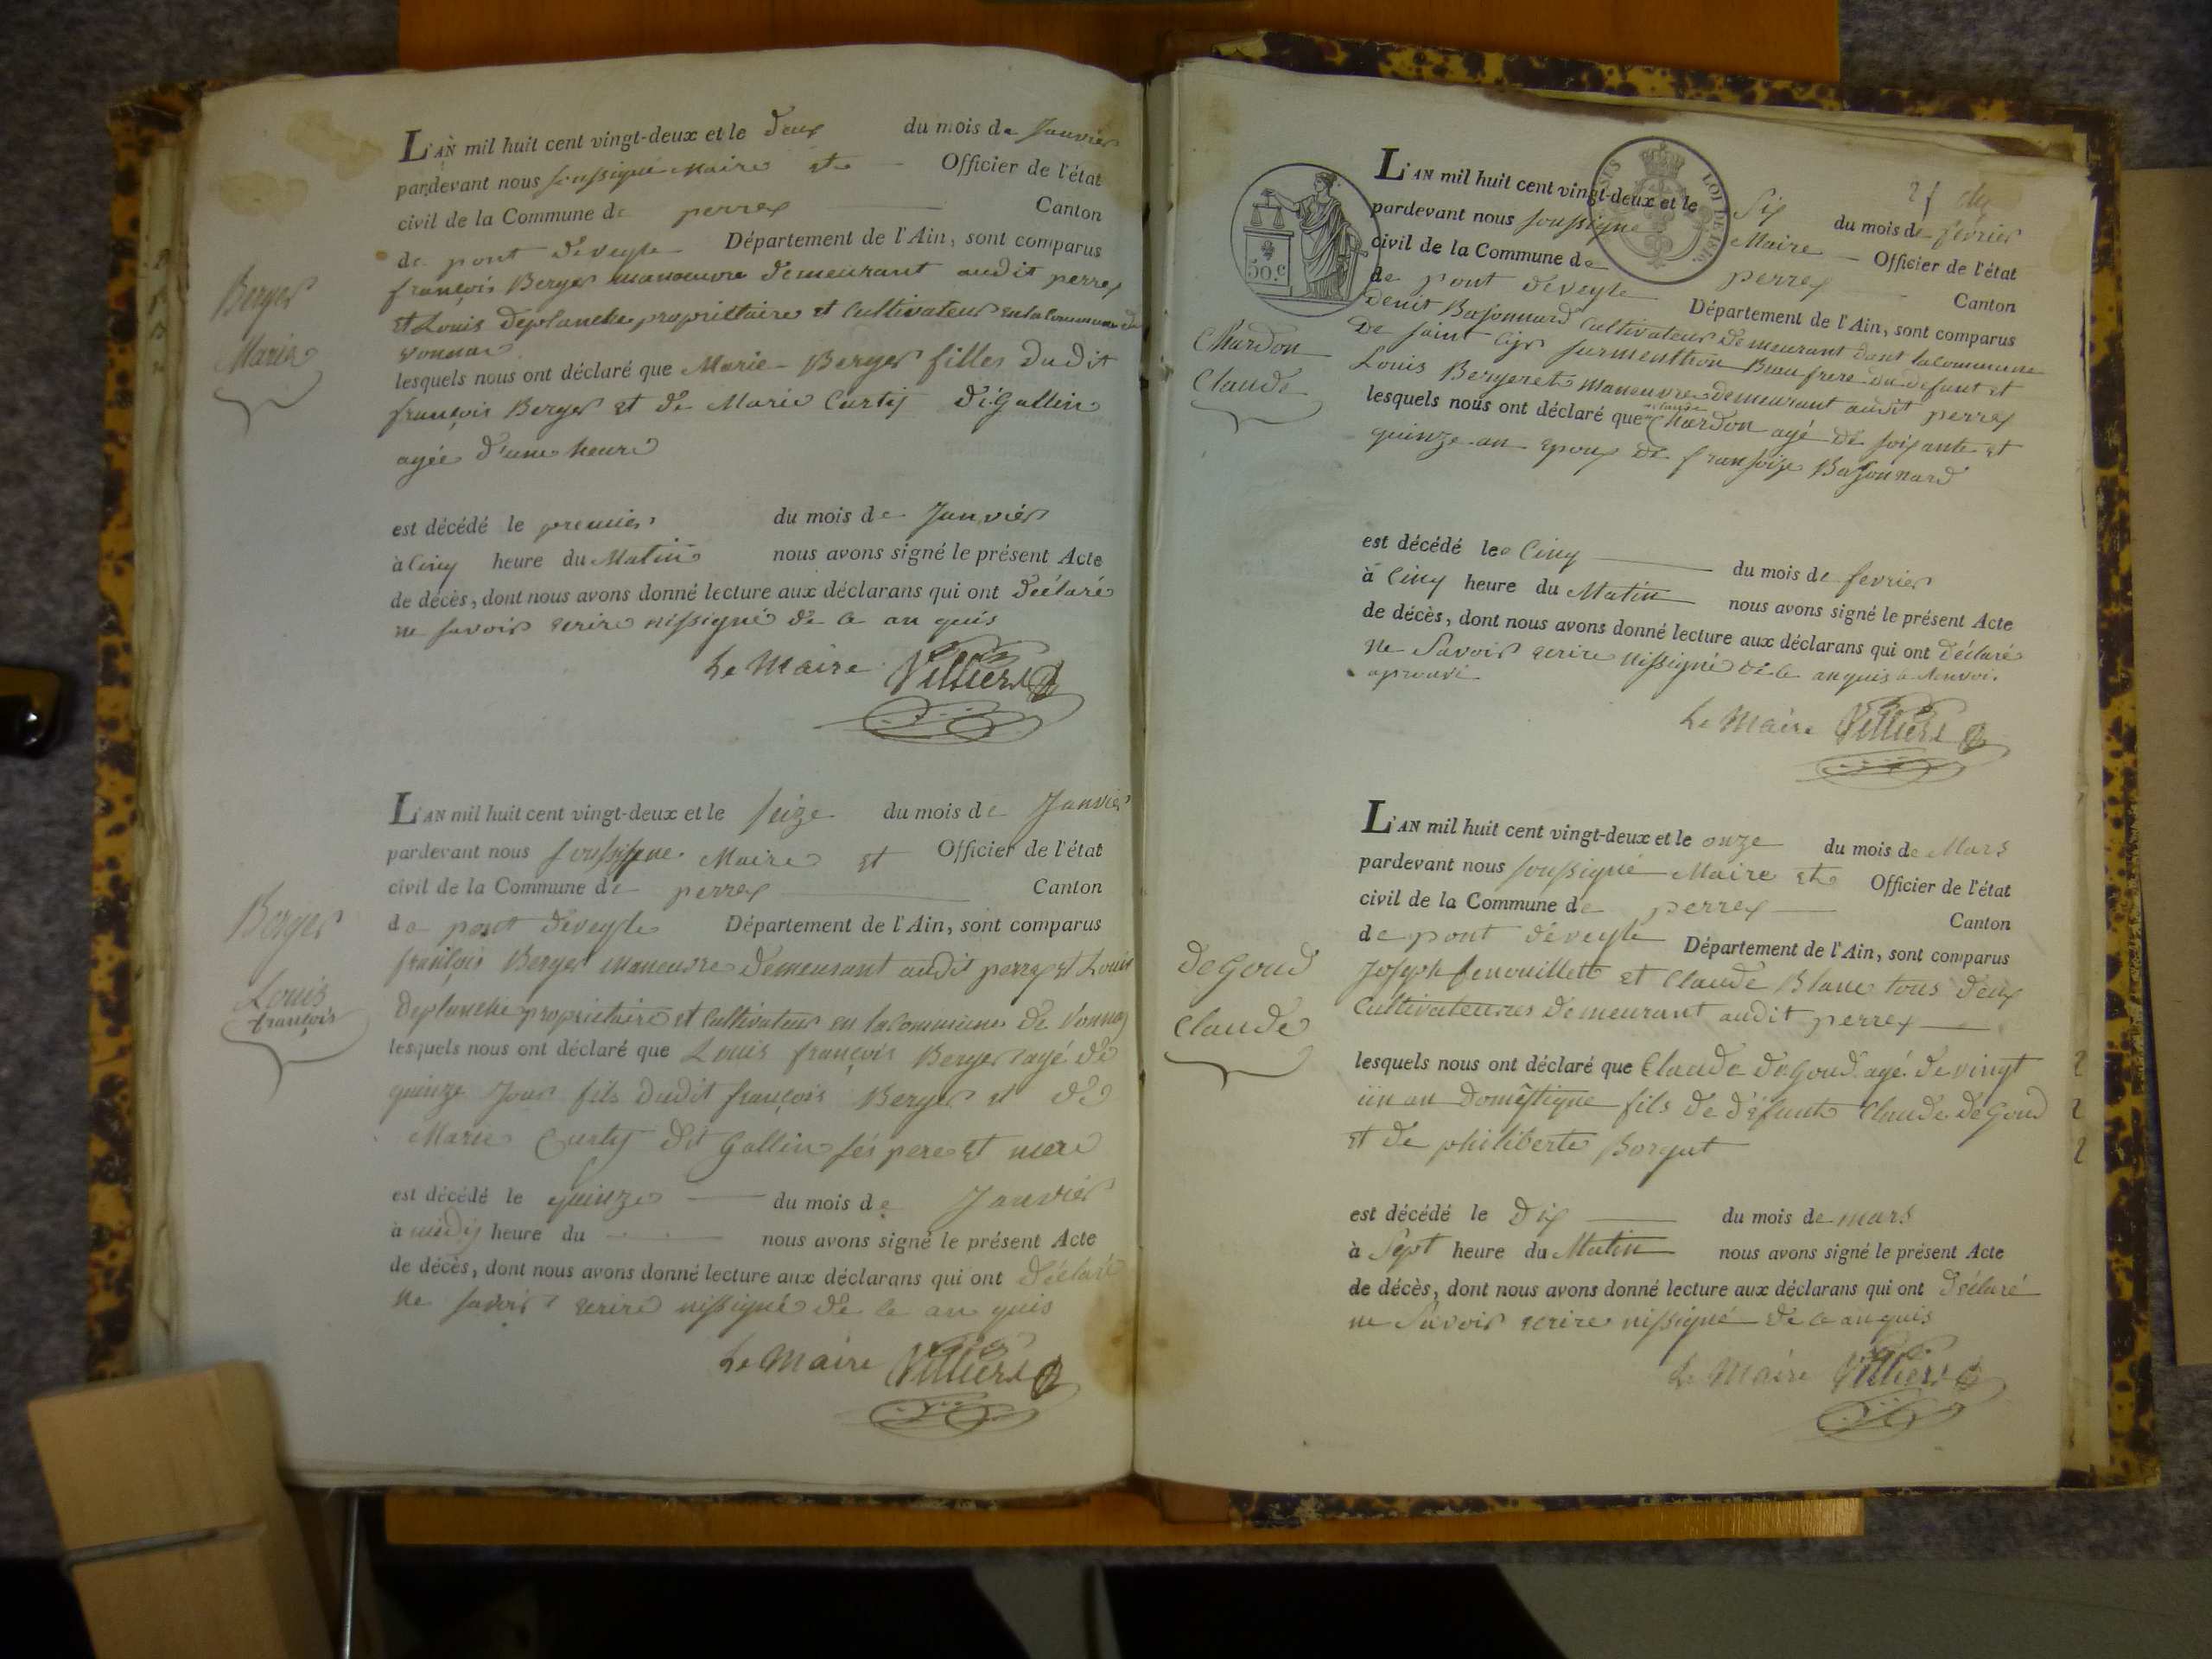 L'AN mil huit cent vingt-deux et le deux du mois de Janvier
pardevant nous soussigné Maire et Officier de l'état
civil de la Commune de perrex Canton
de pont deveyle Département de l'Ain, sont comparus
françois Berger manoeuvre demeurant audit perrex
et Louis deplanche proprietaire et Cultivateur en la commune de
vonnas
lesquels nous ont déclaré que Marie Berger filles dudit
françois Berger et de Marie Curty dit Gallin
agée d'une heure
est décédé le premier du mois de Janvier
à Cinq heure du Matin nous avons signé le présent Acte
de décès, dont nous avons donné lecture aux déclarans qui ont déclaré
ne savoir ecrire nissigné de ce an quis
Le Maire Villiers
Berger
Marie
L'AN mil huit cent vingt-deux et le seize du mois de Janvier
pardevant nous soussigne Maire et Officier de l'état
civil de la Commune de perrex Canton
de pont deveyle Département de l'Ain, sont comparus
françois Berger maneuvre demeurant audit perrex et Louis
deplanche proprietaire et Cultivateur en la commune de Vonnas
lesquels nous ont déclaré que Louis françois Berger agé de
quinze Jour fils dudit françois Berger et de
Marie Curty dit Gallin sés pere et mere
est décédé le quinze du mois de Janvier
à midy heure du nous avons signé le présent Acte
de décès, dont nous avons donné lecture aux déclarans qui ont déclaré
ne savoir ecrire nissigné de ce an quis
Le Maire Villiers
Berger
Louis
françois
50.c
LOI DE 1816.
L'AN mil huit cent vingt-deux et le Six du mois de fevrier
pardevant nous soussigné Maire Officier de l'état
civil de la Commune de perrex Canton
de pont deveyle Département de l'Ain, sont comparus
denis Bajonnard Cultivateur demeurant dant la commune
de saint Cyr surmenthon Beau frere du defunt et
Louis Bergeret maneuvre demeurant audit perrex
lesquels nous ont déclaré que claude Chardon agé de soixante et
quinze an epoux de fransoize Bajonnard
est décédé le Cinq du mois de fevrier
à Cinq heure du Matin nous avons signé le présent Acte
de décès, dont nous avons donné lecture aux déclarans qui ont déclaré
ne Savoir ecrire nissigné de ce an quis a Renvoi
aprouvé
Le Maire Villiers
Chardon
Claude
L'AN mil huit cent vingt-deux et le onze du mois de Mars
pardevant nous soussigné Maire et Officier de l'état
civil de la Commune de perrex Canton
de pont deveyle Département de l'Ain, sont comparus
Joseph fenouillet et Claude Blanc tous deux
Cultivateures demeurant audit perrex
lesquels nous ont déclaré que Claude deGoud agé de vingt
un an Domestique fils de défunt Claude deGoud
et de philiberte Borgut
est décédé le dix du mois de mars
à Sept heure du Matin nous avons signé le présent Acte
de décès, dont nous avons donné lecture aux déclarans qui ont déclaré
ne Savoir ecrire nissigné de ce an quis
Le Maire Villiers
deGoud
Claude